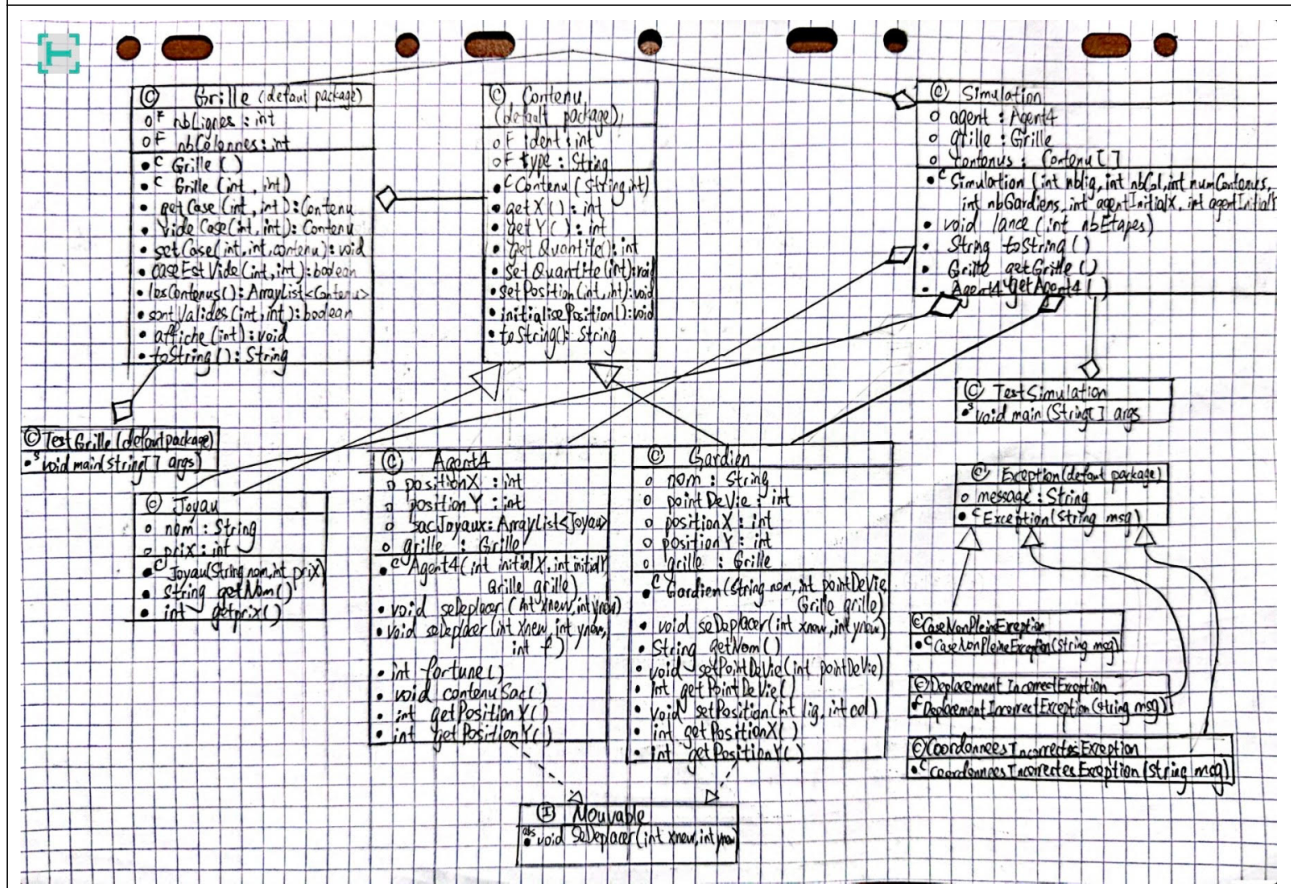 Ⓒ Grille (defaut package)
o F nbLignes : int
o F nbColonnes : int
• C Grille ( )
• C Grille (int, int)
• getCase (int, int) : Contenu
• videCase (int, int) : Contenu
• setCase (int, int, contenu) : void
• caseEstVide (int, int) : boolean
• lesContenus() : ArrayList<Contenu>
• sontValides (int, int) : boolean
• affiche (int) : void
• toString ( ) : String
Ⓒ Contenu
(default package)
o F ident : int
o F type : String
• C Contenu ( String int)
• getX ( ) : int
• getY ( ) : int
• getQuantite( ) : int
• setQuantite (int) : void
• setPosition (int, int) : void
• initialisePosition( ) : void
• toString( ) : String
Ⓒ Simulation
o agent : Agent4
o grille : Grille
o contenus : Contenu [ ]
• C Simulartion (int nblig, int nbCol, int numContenus,
int nbGardiens, int agentInitialX, int agentInitialY
• void lance (int nbEtapes)
• String toString ( )
• Grille getGrille ( )
• Agent4 getAgent4 ( )
Ⓒ TestSimulation
• S void main (String[ ] args
Ⓒ TestGrille (defautpackage)
• S void main(String[ ] args)
Ⓒ Joyau
o nom : String
o prix : int
• C Joyau(String nom, int prix)
• String getNom ( )
• int getprix ( )
Ⓒ Agent4
o positionX : int
o positionY : int
o sacJoyaux : ArrayList<Joyau>
o grille : Grille
• C Agent4 (int initialX, int initialY
Grille grille )
• void seDeplacer (int xnew, int ynew)
• void seDeplacer (int xnew, int ynew,
int f )
• int fortune ( )
• void contenuSac ( )
• int getPositionX ( )
• int getPositionY ( )
Ⓒ Gardien
o nom : String
o pointDeVie : int
o positionX : int
o positionY : int
o grille : Grille
• C Gardien (String nom, int pointDeVie,
Grille grille )
• void seDeplacer (int xnew, int ynew)
• String getNom ( )
• void setPointDeVie (int pointDeVie)
• int getPointDeVie ( )
• void setPosition (int lig, int col)
• int getPositionX ( )
• int getPositionY ( )
Ⓒ Exception (defaut package)
o message : String
• C Exception (String msg)
Ⓒ CaseNonPleineExeption
• C CaseNonPleineException (String msg)
Ⓒ Deplacement IncorrectExeption
C DeplacementIncorrectException (String msg)
Ⓒ CoordonneesIncorrectesExeption
• C CoordonneesIncorrectesException (String msg)
Ⓘ Mouvable
• abs void seDeplacer (int xnew, int ynew)